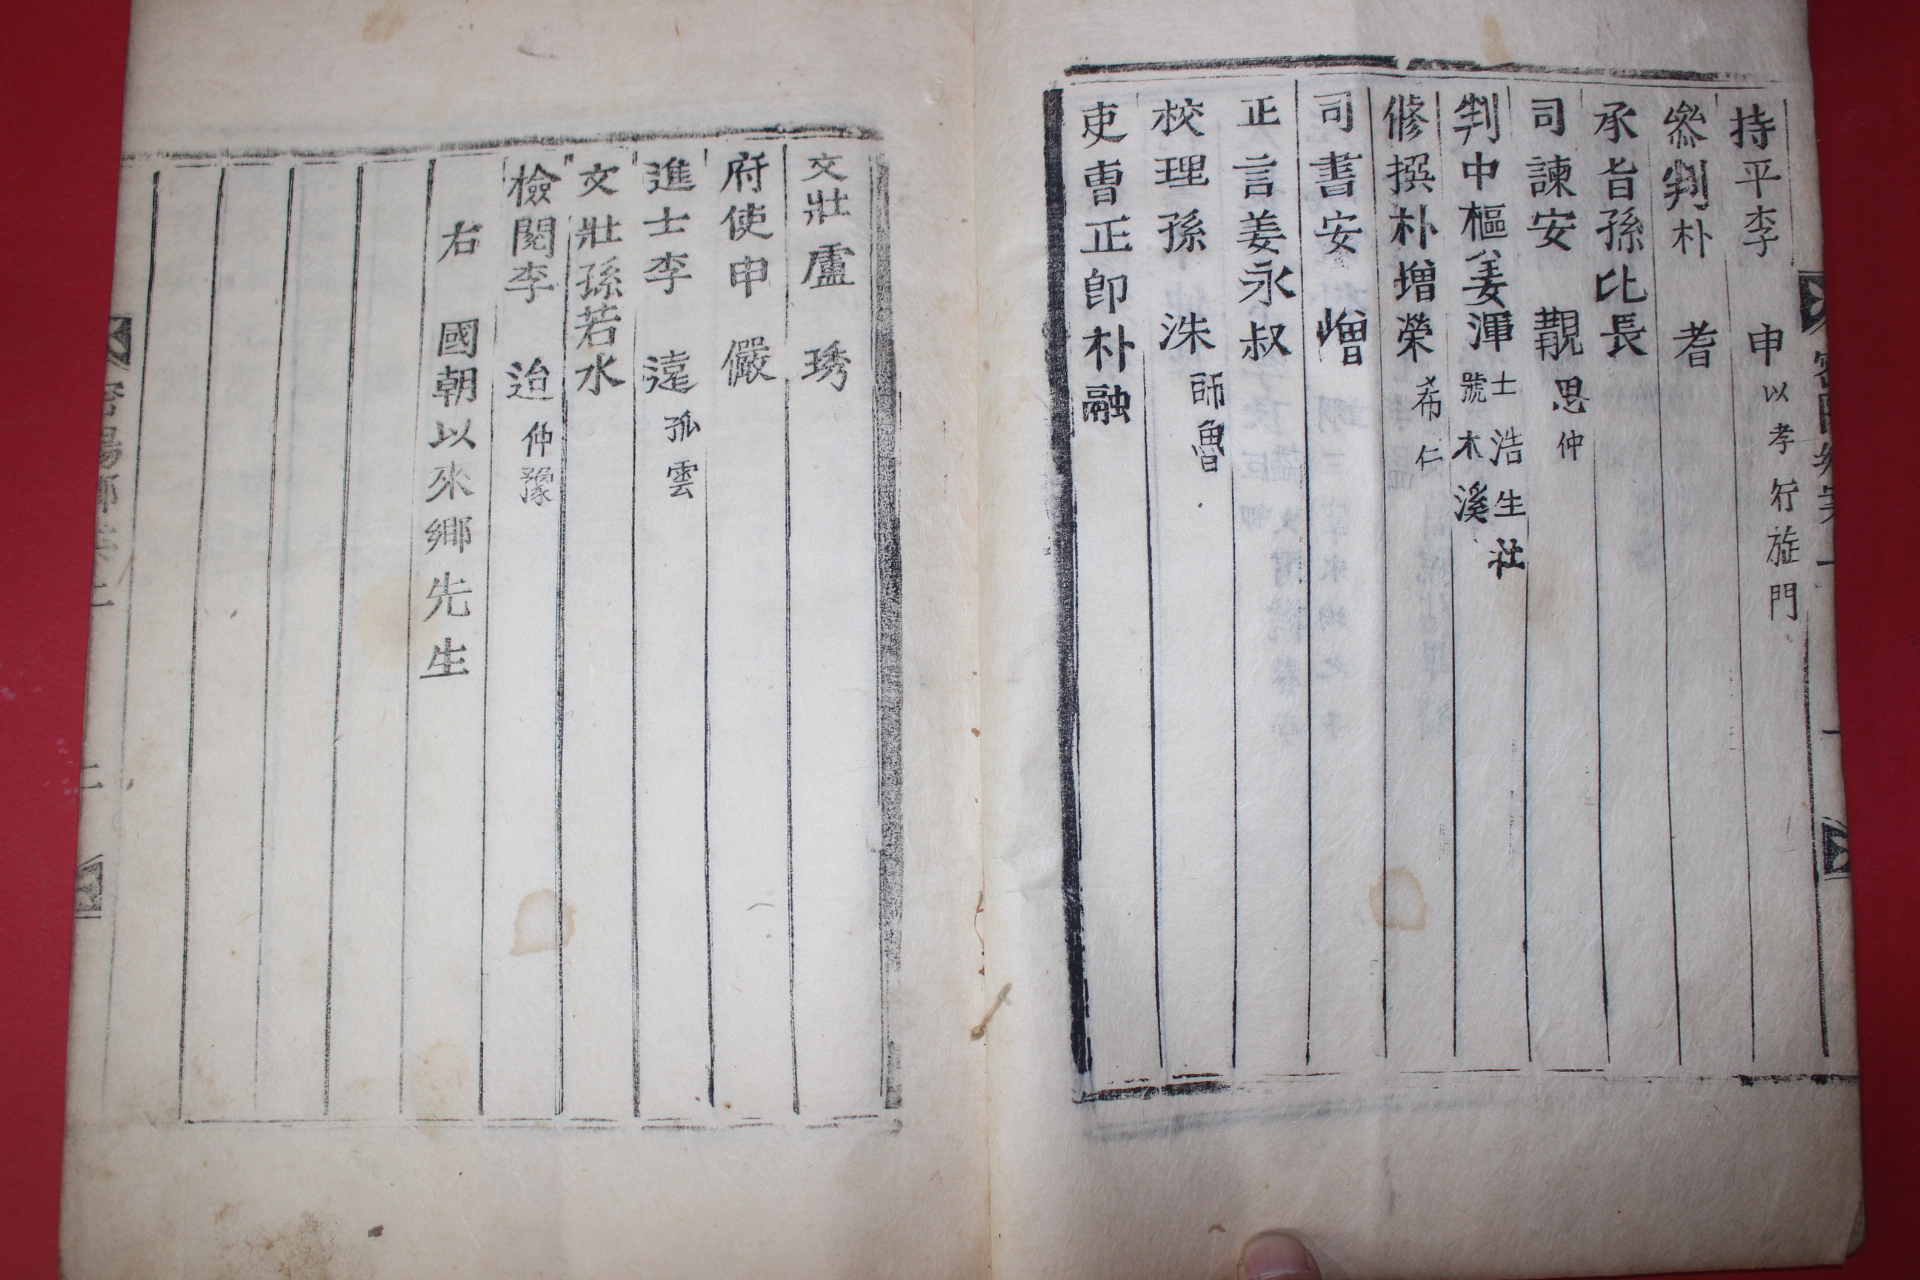 持平李 申 以孝行旌門
參判朴 耆
承旨孫比長
司諫安 覯 思仲
判中樞姜渾 士浩生社 號木溪
修撰朴增榮 希仁
司書安 嶒
正言姜永叔
校理孫 洙 師魯
吏曹正郎朴融
文壯盧 琇
府使申 儼
進士李 遠 孤雲
文壯孫若水
檢閱李 迨 仲豫
右 國朝以來鄉先生